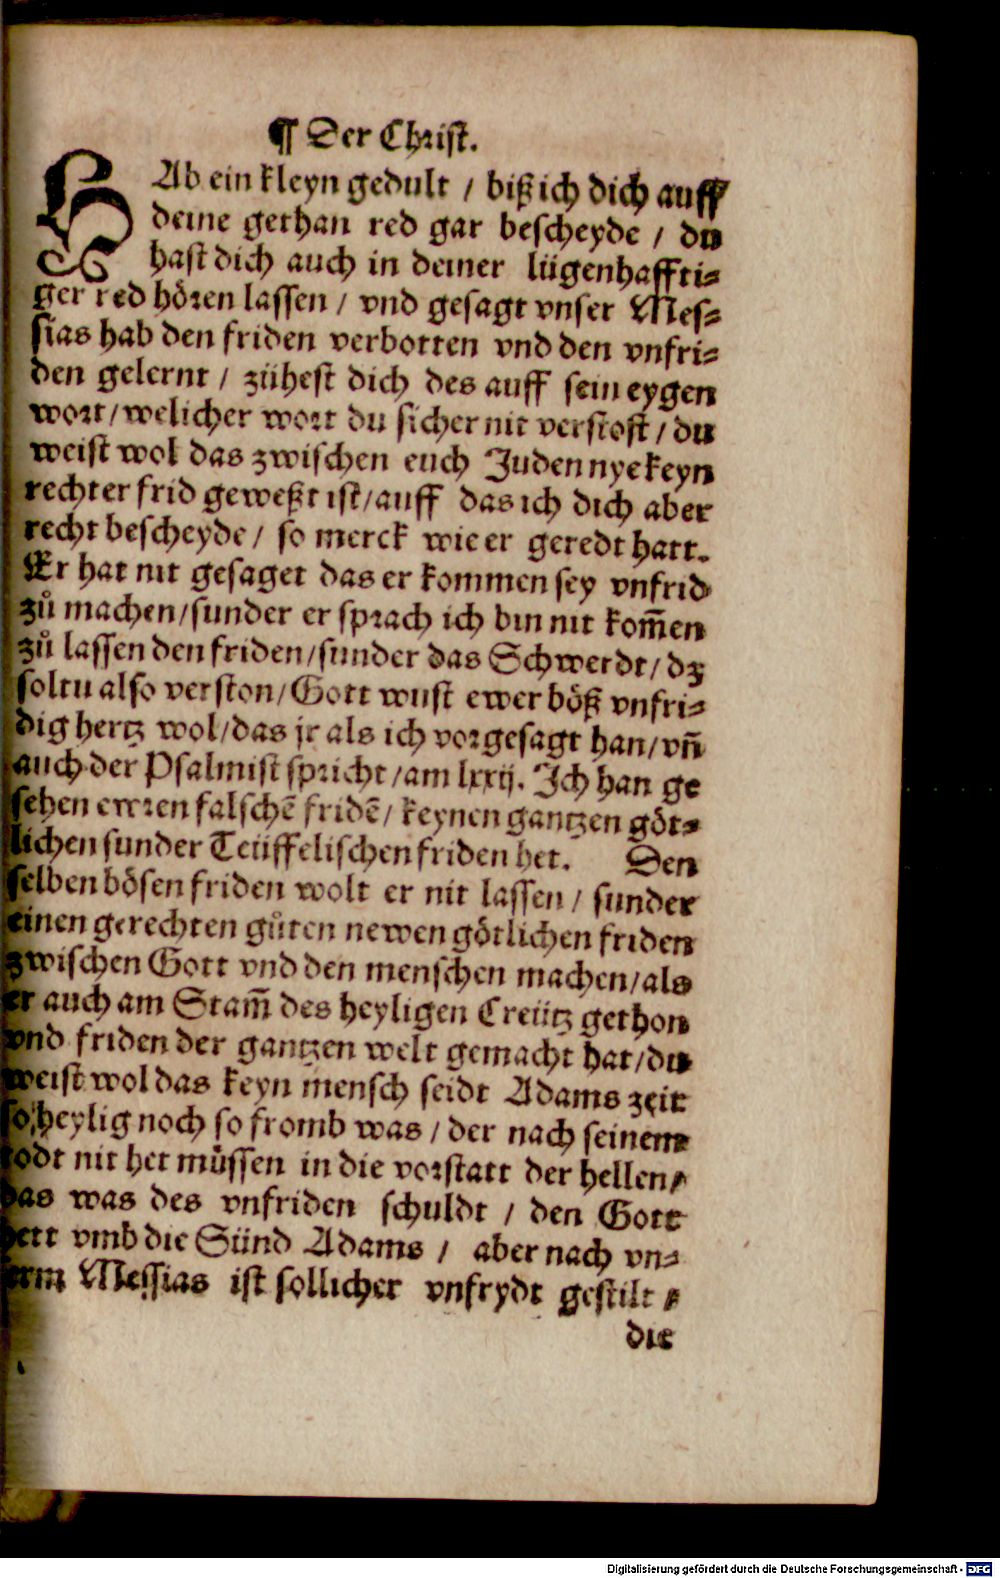 ¶ Der Christ.
HAb ein kleyn gedult / biß ich dich auff
deine gethan red gar bescheyde / du
hast dich auch in deiner lügenhaffti⸗
ger red hören lassen / vnd gesagt vnser Mes⸗
sias hab den friden verbotten vnd den vnfri⸗
den gelernt / zühest dich des auff sein eygen
wort / welicher wort du sicher nit verstost / du
weist wol das zwischen euch Juden nye keyn
rechter frid geweßt ist / auff das ich dich aber
recht bescheyde / so merck wie er geredt hatt.
Er hat nit gesaget das er kommen sey vnfrid
zů machen / sunder er sprach ich bin nit kom̄en
zů lassen den friden / sunder das Schwerdt / dz
soltu also verston / Gott wust ewer böß vnfri⸗
dig hertz wol / das jr als ich vorgesagt han / vn̄
auch der Psalmist spricht / am lxxij. Ich han ge
sehen ewren falschē fridē / keynen gantzen göt⸗
lichen sunder Teüffelischen friden het. Den
selben bösen friden wolt er nit lassen / sunder
einen gerechten gůten newen götlichen friden
zwischen Gott vnd den menschen machen / als
er auch am Stam̄ des heyligen Creütz gethon
vnd friden der gantzen welt gemacht hat / du
weist wol das keyn mensch seidt Adams zeit
so heylig noch so fromb was / der nach seinem
todt nit het müssen in die vorstatt der hellen /
das was des vnfriden schuldt / den Gott
hett vmb die Sünd Adams / aber nach vn⸗
serm Messias ist sollicher vnfrydt gestilt /
die
Digitalisierung gefördert durch die Deutsche Forschungsgemeinschaft - DFG